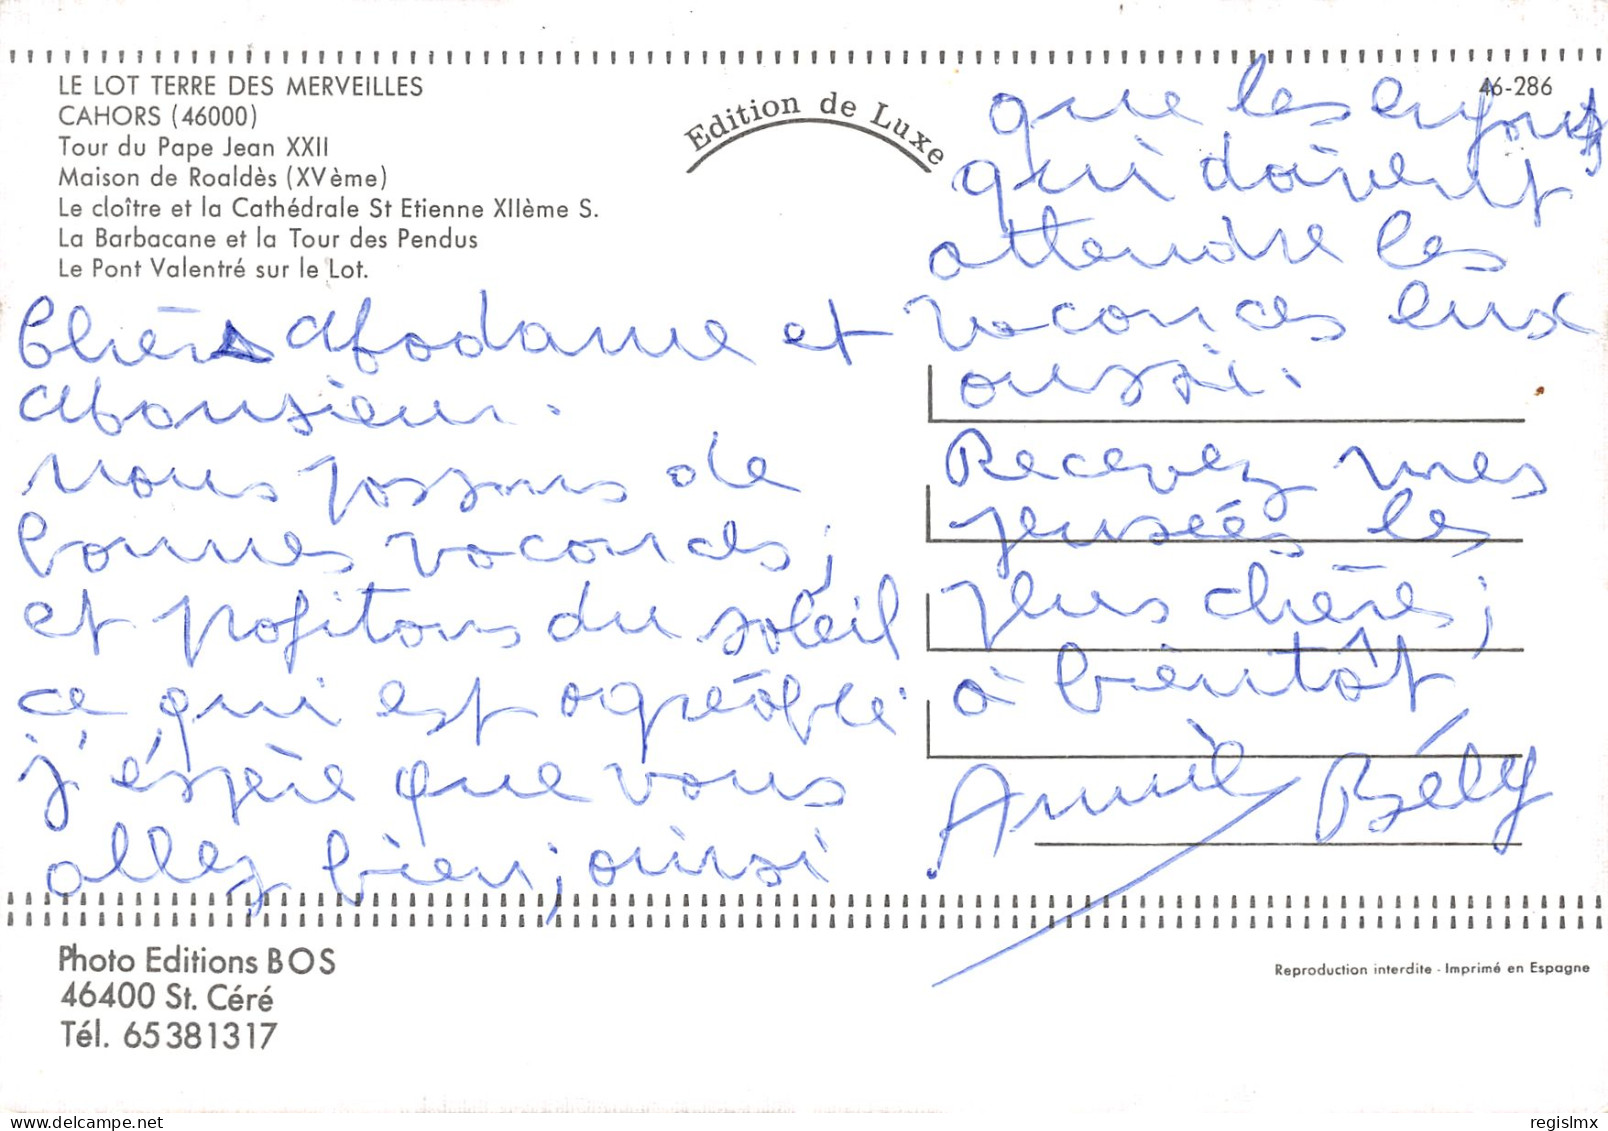 LE LOT TERRE DES MERVEILLES
CAHORS (46000)
Tour du Pape Jean XXII
Maison de Roaldès (XVème)
Le cloître et la Cathédrale St Etienne XIIème S.
La Barbacane et la Tour des Pendus
Le Pont Valentré sur le Lot.
Edition de Luxe
46-286
Chère Madame et
Monsieur.
nous passons de
bonnes vacances,
et profitons du soleil
ce qui est agréable.
j'éspère que vous
allez bien, ainsi
que les enfants
qui doivent
attendre les
vacances eux
aussi.
Recevez mes
pensées les
plus chères,
à bientôt
Annie Bély
Photo Editions BOS
46400 St. Céré
Tél. 65381317
Reproduction interdite - Imprimé en Espagne
regislmx